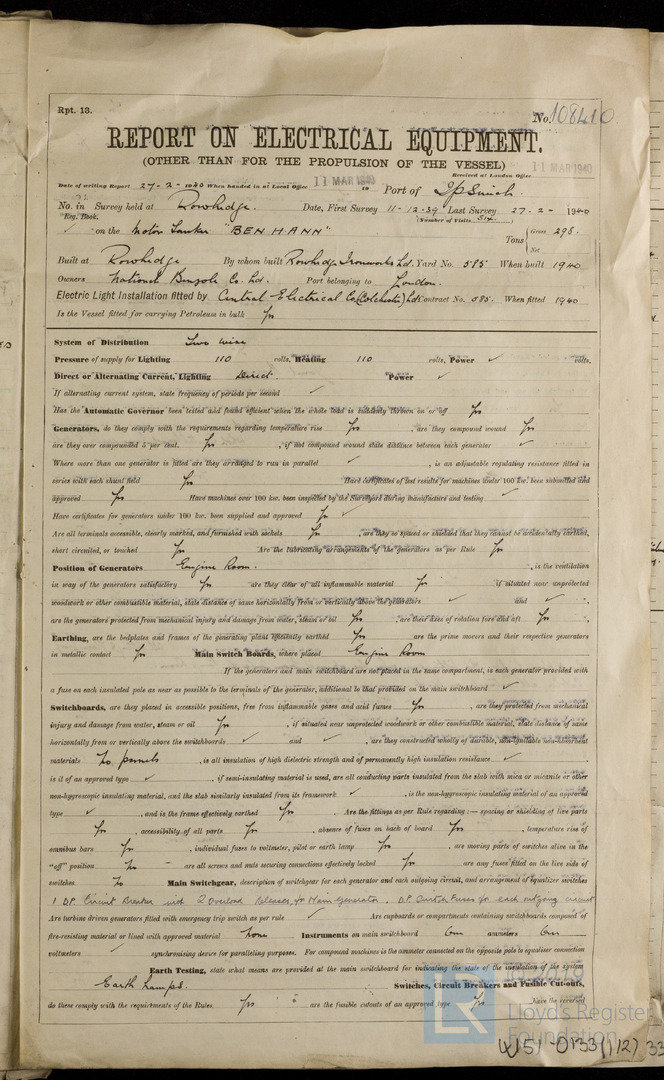 Rpt. 13.
No. 108410
REPORT ON ELECTRICAL EQUIPMENT.
(OTHER THAN FOR THE PROPULSION OF THE VESSEL)
11 MAR 1940
Received at London Office
Date of writing Report 27-2-1940 When handed in at Local Office 11 MAR 1940 Port of Ipswich.
No. in Survey held at Rowhedge. Date, First Survey 11-12-39 Last Survey 27-2-1940
Reg. Book. (Number of Visits Six.)
on the Motor Tanker "BEN HANN" Tons Gross 298. Net
Built at Rowhedge By whom built Rowhedge Ironworks Ltd. Yard No. 585 When built 1940
Owners National Benzole Co. Ltd. Port belonging to London.
Electric Light Installation fitted by Central Electrical Co (Colchester) Ltd Contract No. 585. When fitted 1940
Is the Vessel fitted for carrying Petroleum in bulk Yes
System of Distribution Two wire
Pressure of supply for Lighting 110 volts, Heating 110 volts, Power ✓ volts.
Direct or Alternating Current, Lighting Direct Power ✓
If alternating current system, state frequency of periods per second ✓
Has the Automatic Governor been tested and found efficient when the whole load is suddenly thrown on or off Yes
Generators, do they comply with the requirements regarding temperature rise Yes, are they compound wound Yes
are they over compounded 5 per cent. Yes, if not compound wound state distance between each generator ✓
Where more than one generator is fitted are they arranged to run in parallel ✓, is an adjustable regulating resistance fitted in
series with each shunt field Yes Have certificates of test results for machines under 100 kw. been submitted and
approved Yes Have machines over 100 kw. been inspected by the Surveyors during manufacture and testing ✓
Have certificates for generators under 100 kw. been supplied and approved Yes ✓
Are all terminals accessible, clearly marked, and furnished with sockets Yes, are they so spaced or shielded that they cannot be accidentally earthed,
short circuited, or touched Yes Are the lubricating arrangements of the generators as per Rule Yes
Position of Generators Engine Room., is the ventilation
in way of the generators satisfactory Yes are they clear of all inflammable material Yes if situated near unprotected
woodwork or other combustible material, state distance of same horizontally from or vertically above the generators ✓ and ✓,
are the generators protected from mechanical injury and damage from water, steam or oil Yes, are their axes of rotation fore and aft Yes,
Earthing, are the bedplates and frames of the generating plant efficiently earthed Yes are the prime movers and their respective generators
in metallic contact Yes Main Switch Boards, where placed Engine Room
If the generators and main switchboard are not placed in the same compartment, is each generator provided with
a fuse on each insulated pole as near as possible to the terminals of the generator, additional to that provided on the main switchboard ✓
Switchboards, are they placed in accessible positions, free from inflammable gases and acid fumes Yes, are they protected from mechanical
injury and damage from water, steam or oil Yes, if situated near unprotected woodwork or other combustible material, state distance of same
horizontally from or vertically above the switchboards ✓ and ✓, are they constructed wholly of durable, non-ignitable non-absorbent
materials No panels, is all insulation of high dielectric strength and of permanently high insulation resistance ✓
is it of an approved type ✓, if semi-insulating material is used, are all conducting parts insulated from the slab with mica or micanite or other
non-hygroscopic insulating material, and the slab similarly insulated from its framework ✓, is the non-hygroscopic insulating material of an approved
type ✓, and is the frame effectively earthed Yes. Are the fittings as per Rule regarding:— spacing or shielding of live parts
Yes, accessibility of all parts Yes, absence of fuses on back of board Yes, temperature rise of
omnibus bars Yes, individual fuses to voltmeter, pilot or earth lamp Yes, are moving parts of switches alive in the
"off" position No are all screws and nuts securing connections effectively locked Yes are any fuses fitted on the live side of
switches No Main Switchgear, description of switchgear for each generator and each outgoing circuit, and arrangement of equalizer switches
1 D.P. Circuit Breaker with 2 Overload releases, for Main Generator. D.P. Switch Fuses for each outgoing circuit
Are turbine driven generators fitted with emergency trip switch as per rule ✓ Are cupboards or compartments containing switchboards composed of
fire-resisting material or lined with approved material None Instruments on main switchboard One ammeters One
voltmeters ✓ synchronising device for paralleling purposes. For compound machines is the ammeter connected on the opposite pole to equaliser connection
Earth Testing, state what means are provided at the main switchboard for indicating the state of the insulation of the system
Earth Lamps. Switches, Circuit Breakers and Fusible Cut-outs,
do these comply with the requirements of the Rules Yes are the fusible cutouts of an approved type Yes Have the reversed
LR Lloyd's Register
Foundation
W51-0133(1/2) 33